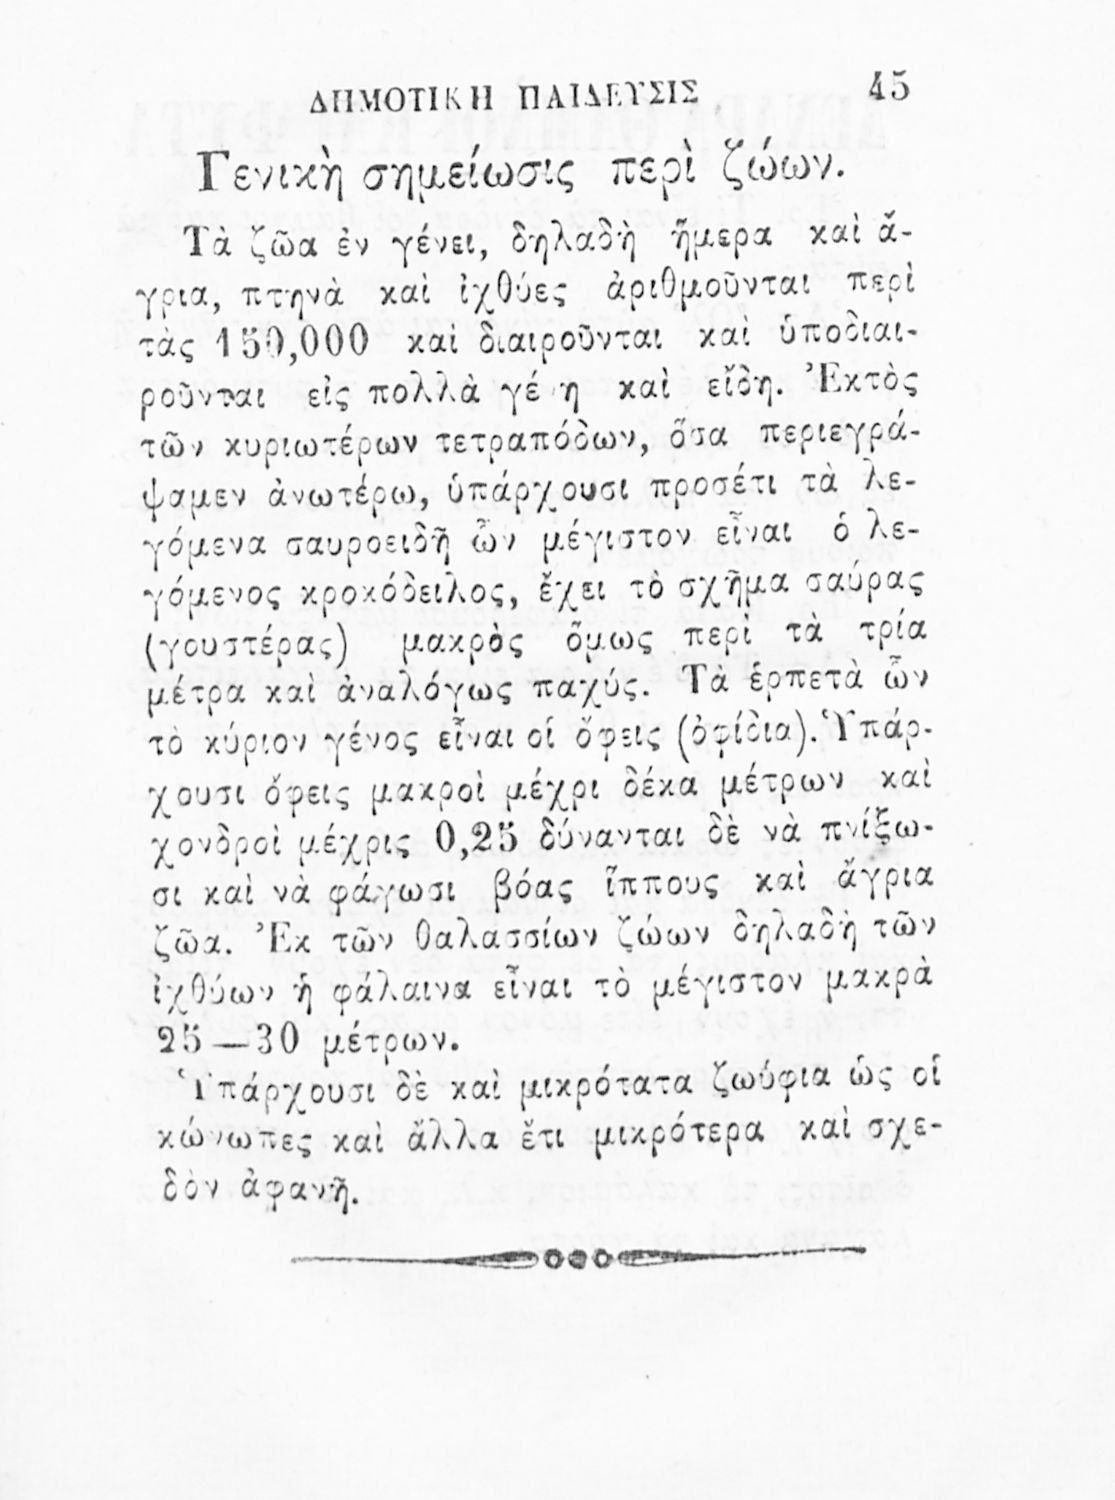 ΔΗΜΟΤΙΚΗ ΠΑΙΔΕΥΣΙΣ 45
Γενικὴ σημείωσις περὶ ζώων.
Τὰ ζῶα ἐν γένει, δηλαδὴ ἥμερα καὶ ἄ-
γρια, πτηνὰ καὶ ἰχθύες ἀριθμοῦνται περὶ
τὰς 150,000 καὶ διαιροῦνται καὶ ὑποδιαι-
ροῦνται εἰς πολλὰ γένη καὶ εἴδη. Ἐκτὸς
τῶν κυριωτέρων τετραπόδων, ὅσα περιεγρά-
ψαμεν ἀνωτέρω, ὑπάρχουσι προσέτι τὰ λε-
γόμενα σαυροειδῆ ὧν μέγιστον εἶναι ὁ λε-
γόμενος κροκόδειλος, ἔχει τὸ σχῆμα σαύρας
(γουστέρας) μακρὸς ὅμως περὶ τὰ τρία
μέτρα καὶ ἀναλόγως παχύς. Τὰ ἑρπετὰ ὧν
τὸ κύριον γένος εἶναι οἱ ὄφεις (ὀφίδια). Ὑπάρ-
χουσι ὄφεις μακροὶ μέχρι δέκα μέτρων καὶ
χονδροὶ μέχρις 0,25 δύνανται δὲ νὰ πνίξω-
σι καὶ νὰ φάγωσι βόας ἵππους καὶ ἄγρια
ζῶα. Ἐκ τῶν θαλασσίων ζώων δηλαδὴ τῶν
ἰχθύων ἡ φάλαινα εἶναι τὸ μέγιστον μακρὰ
25—30 μέτρων.
Ὑπάρχουσι δὲ καὶ μικρότατα ζωύφια ὡς οἱ
κώνωπες καὶ ἄλλα ἔτι μικρότερα καὶ σχε-
δὸν ἀφανῆ.